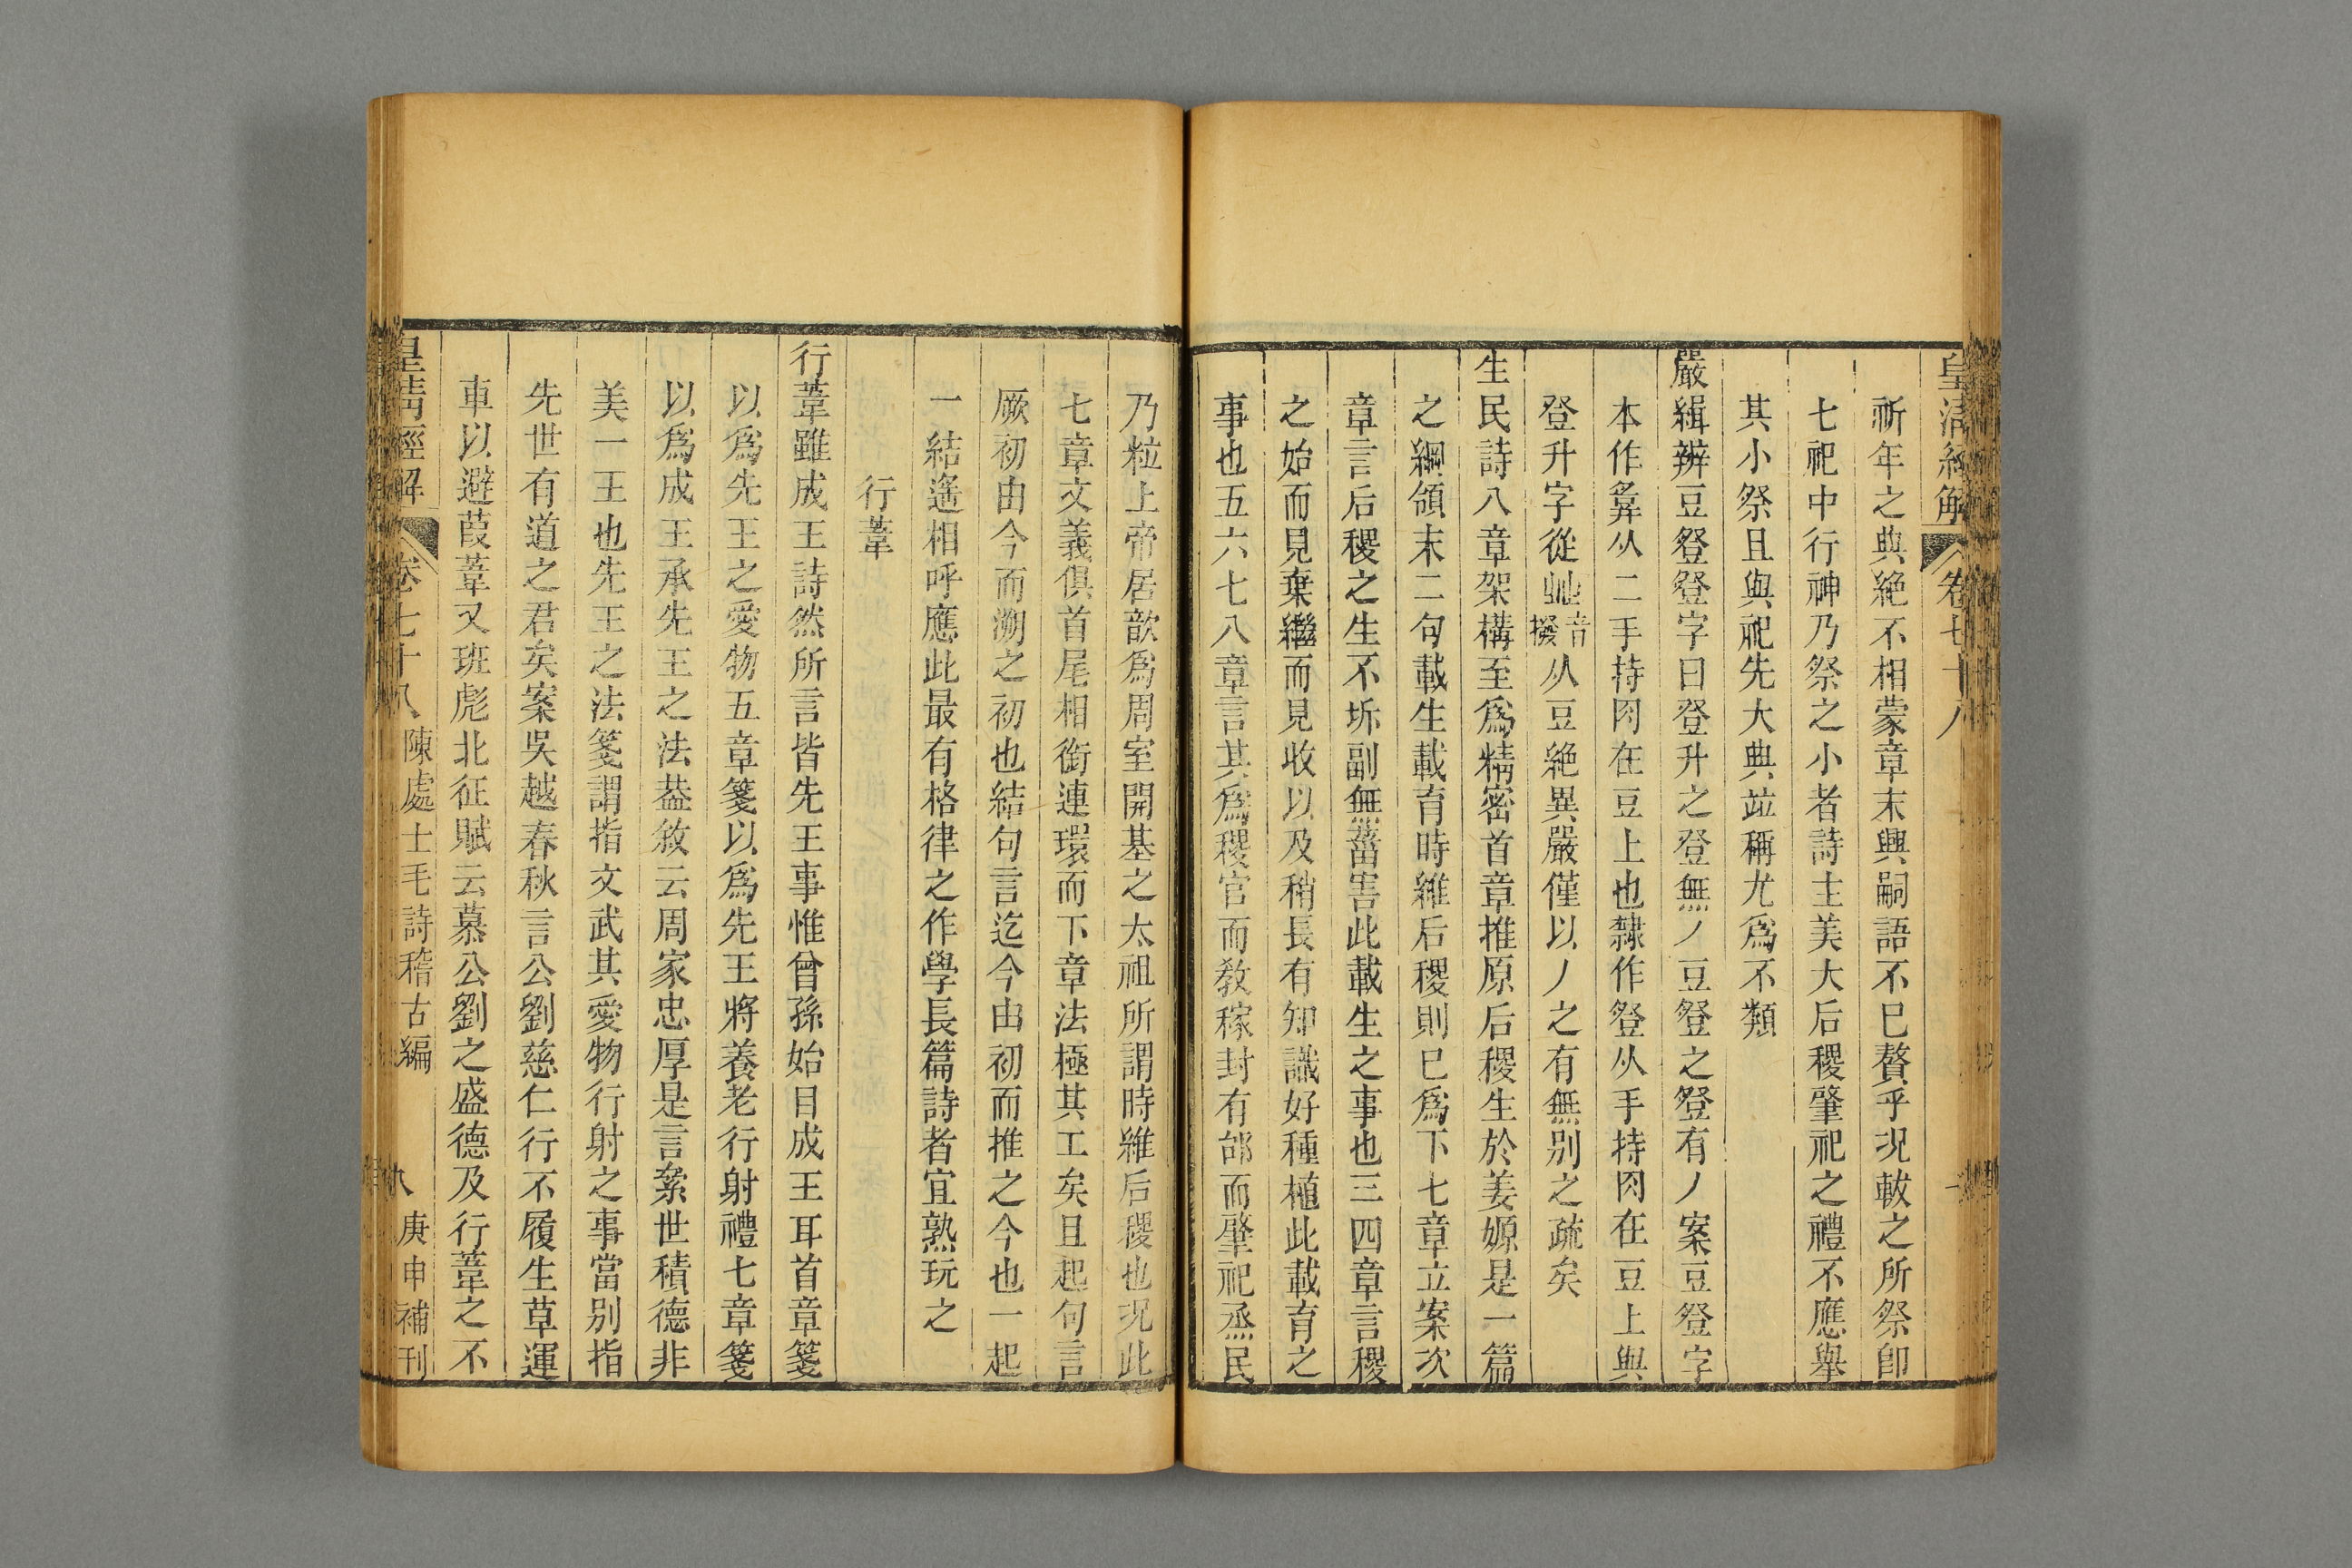 皇清經解 卷七十八
祈年之典絶不相蒙章末興嗣語不巳贅乎况軷之所祭卽
七祀中行神乃祭之小者詩主美大后稷肇祀之禮不應舉
其小祭且與祀先大典竝稱尤爲不類
嚴緝辨豆登登字曰登升之登無丿豆登之登有丿案豆登字
本作䇺从二手持肉在豆上也隸作登从手持肉在豆上與
登升字從癶音撥从豆絶異嚴僅以丿之有無别之疏矣
生民詩八章架構至爲精密首章推原后稷生於姜嫄是一篇
之綱領末二句載生載育時維后稷則巳爲下七章立案次
章言后稷之生不坼副無菑害此載生之事也三四章言稷
之始而見棄繼而見收以及稍長有知識好種植此載育之
事也五六七八章言其爲稷官而敎稼封有邰而肇祀烝民
乃粒上帝居歆爲周室開基之太祖所謂時維后稷也况此
七章文義俱首尾相銜連環而下章法極其工矣且起句言
厥初由今而溯之初也結句言迄今由初而推之今也一起
一結遙相呼應此最有格律之作學長篇詩者宜熟玩之
行葦
行葦雖成王詩然所言皆先王事惟曾孫始目成王耳首章箋
以爲先王之愛物五章箋以爲先王將養老行射禮七章箋
以爲成王承先王之法葢敘云周家忠厚是言絫世積德非
美一王也先王之法箋謂指文武其愛物行射之事當别指
先世有道之君矣案吳越春秋言公劉慈仁行不履生草運
車以避葭葦又班彪北征賦云慕公劉之盛德及行葦之不
皇清經解 卷七十八 陳處士毛詩稽古編 八 庚申補刊